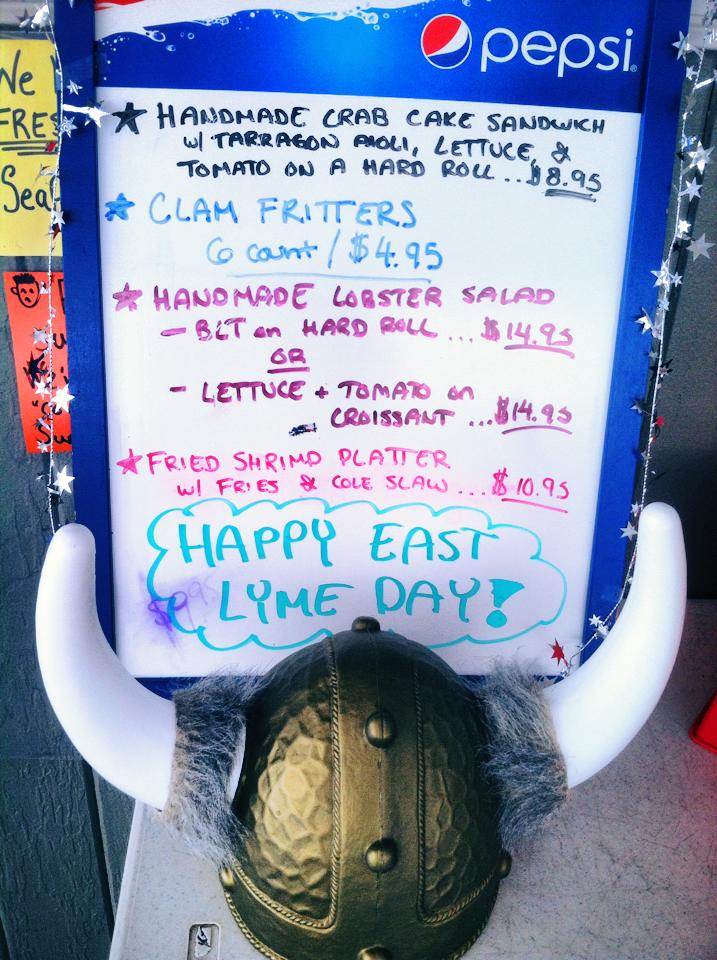 pepsi
★ HANDMADE CRAB CAKE SANDWICH
w/ TARRAGON AIOLI, LETTUCE, &
TOMATO ON A HARD ROLL...$8.95
★ CLAM FRITTERS
6 count / $4.95
★ HANDMADE LOBSTER SALAD
- BLT on HARD ROLL ... $14.95
OR
- LETTUCE + TOMATO on
CROISSANT ...$14.95
★ FRIED SHRIMP PLATTER
w/ FRIES & COLE SLAW ...$10.95
HAPPY EAST
LYME DAY!
We